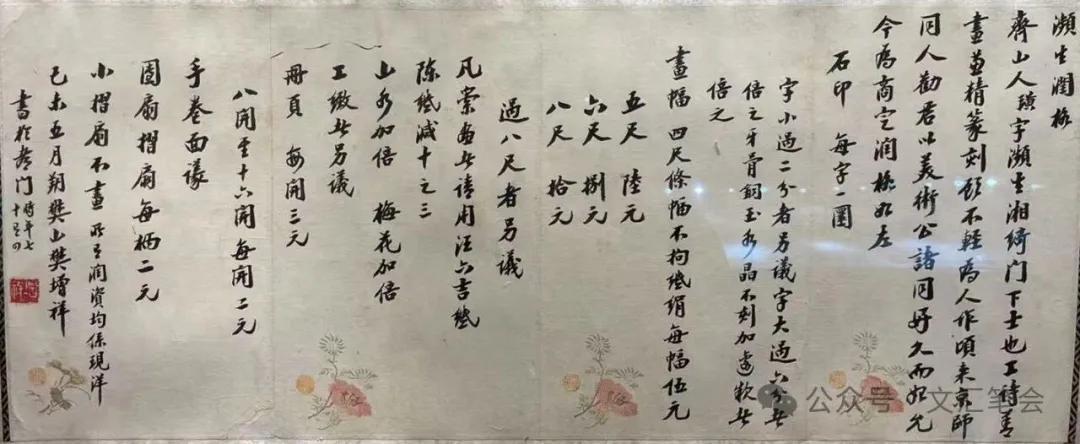 瀕生潤格
齊山人璜字瀕生湘綺門下士也工詩善
畫兼精篆刻顧不輕為人作頃來京師
同人勸君以美術公諸同好久而始允
今為商定潤格如左
石印 每字一圓
字小過二分者另議字大過六分者
倍之牙骨銅玉水晶不刻加邊款者
倍之
畫幅 四尺條幅不拘紙絹每幅伍元
五尺 陸元
六尺 捌元
八尺 拾元
過八尺者另議
凡索畫者請用汪六吉紙
陳紙減十之三
山水加倍 梅花加倍
工緻者另議
冊頁 每開三元
八開至十六開每開二元
手卷面議
團扇摺扇每柄二元
小摺扇不畫 所有潤資均係現洋
己未五月朔樊山樊增祥
書於都門 時年七
十有四
公众号·文汇笔会